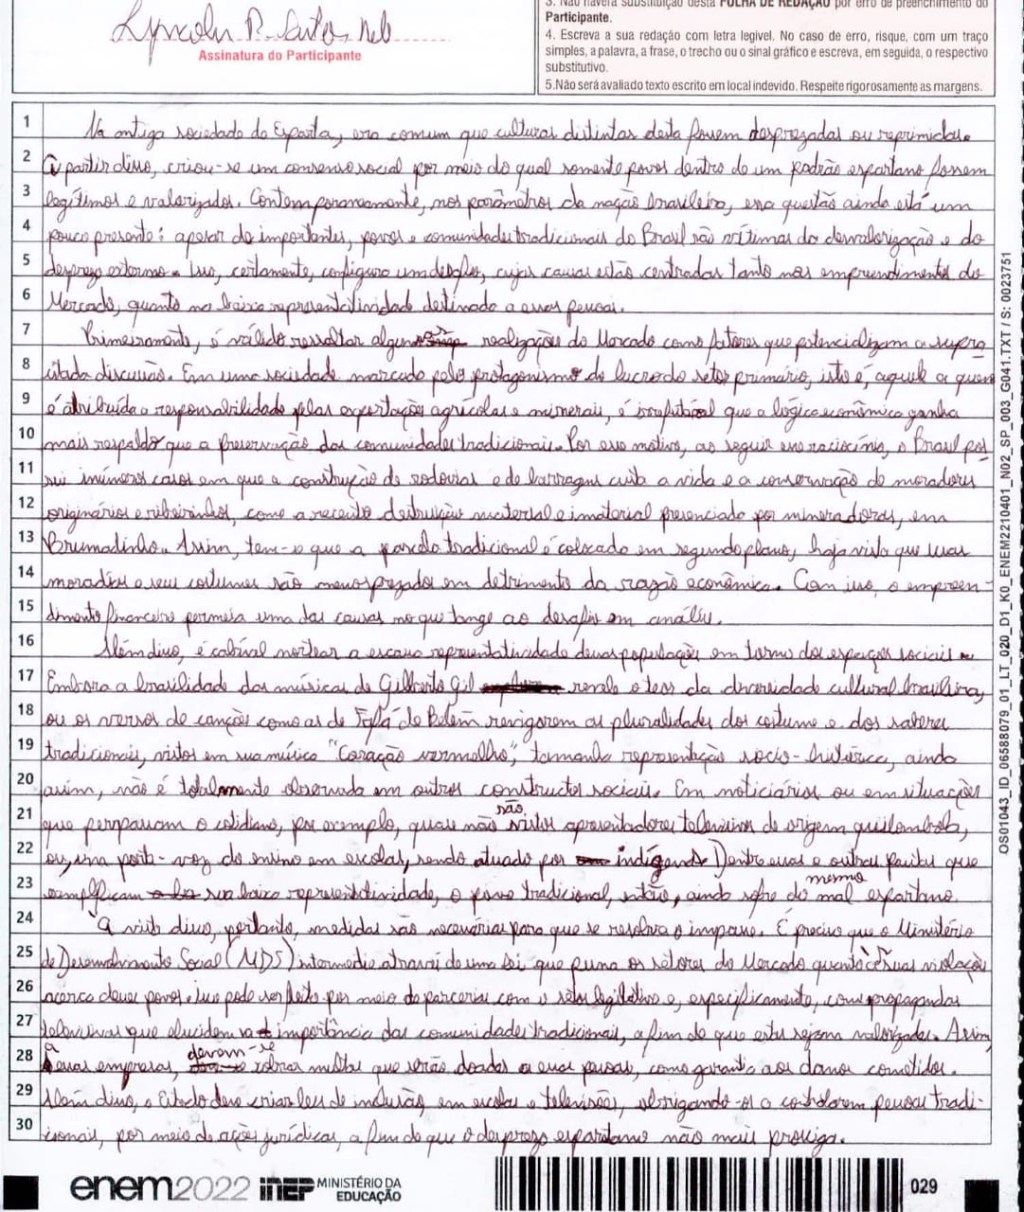 Lyncoln P. Neto
Assinatura do Participante
3. Não haverá substituição desta FOLHA DE REDAÇÃO por erro de preenchimento do
Participante.
4. Escreva a sua redação com letra legível. No caso de erro, risque, com um traço
simples, a palavra, a frase, o trecho ou o sinal gráfico e escreva, em seguida, o respectivo
substitutivo.
5.Não será avaliado texto escrito em local indevido. Respeite rigorosamente as margens.
1 Na antiga sociedade de Esparta, era comum que culturas distintas desta fossem desprezadas ou reprimidas.
2 A partir disso, criou-se um consenso social por meio do qual somente povos dentro de um padrão espartano fossem
3 legítimos e valorizados. Contemporaneamente, nos parâmetros da nação brasileira, essa questão ainda está um
4 pouco presente: apesar de importantes, povos e comunidades tradicionais do Brasil são vítimas da desvalorização e do
5 desprezo externo. Isso, certamente, configura um desafio, cujas causas estão centradas tanto nos empreendimentos do
6 Mercado, quanto na baixa representatividade destinada a essas pessoas.
7 Primeiramente, é válido ressaltar algumas realizações do Mercado como fatores que potencializam a supra
8 citada discussão. Em uma sociedade marcada pelo protagonismo do lucro do setor primário, isto é, aquele a quem
9 é atribuída a responsabilidade pelas exportações agrícolas e minerais, é irrefutável que a lógica econômica ganha
10 mais respaldo que a preservação das comunidades tradicionais. Por esse motivo, ao seguir esse raciocínio, o Brasil pos-
11 sui inúmeros casos em que a construção de rodovias e de barragens custa a vida e a conservação de moradores
12 originários e ribeirinhos, como a recente destruição material e imaterial presenciada por mineradoras, em
13 Brumadinho. Assim, tem-se que a parcela tradicional é colocada em segundo plano, haja vista que suas
14 moradias e seus costumes são menosprezados em detrimento da razão econômica. Com isso, o empreen-
15 dimento financeiro permeia uma das causas no que tange ao desafio em análise.
16 Além disso, é cabível nortear a escassa representatividade dessas populações em torno dos espaços sociais.
17 Embora a brasilidade das músicas de Gilberto Gil revele o teor da diversidade cultural brasileira,
18 ou os versos de canções como as de Fafá de Belém revigorem as pluralidades dos costume e dos saberes
19 tradicionais, vistos em sua música "Coração vermelho", tamanha representação socio-histórica, ainda
20 assim, não é totalmente observada em outros constructos sociais. Em noticiários ou em situações
21 que perpassam o cotidiano, por exemplo, quase não são vistos apresentadores televisivos de origem quilombola,
22 ou, um porta-voz do ensino em escolas, sendo atuado por indígenas. Dentre essas e outras pautas que
23 exemplificam sua baixa representatividade, o povo tradicional, então, ainda sofre do mesmo mal espartano.
24 À vista disso, portanto, medidas são necessárias para que se resolva o impasse. É preciso que o Ministério
25 de Desenvolvimento Social (MDS) intermedie através de uma lei que puna os setores do Mercado quanto às suas violações
26 acerca desses povos. Isso pode ser feito por meio de parcerias com o setor legislativo e, especificamente, com propagandas
27 televisivas que elucidem a importância das comunidades tradicionais, a fim de que estas sejam valorizadas. Assim,
28 a essas empresas, devem-se cobrar multas que serão doadas a essas pessoas, como garantia aos danos cometidos.
29 Além disso, o Estado deve criar leis de inclusão, em escolas e televisões, obrigando-os a contratarem pessoas tradi-
30 cionais, por meio de ações jurídicas, a fim de que o desprezo espartano não mais prossiga.
enem2022 inep MINISTÉRIO DA
EDUCAÇÃO
029
OS01043_ID_06588079_01_LT_020_D1_K0_ENEM2210401_N02_SP_003_G041.TXT / S: 0023751